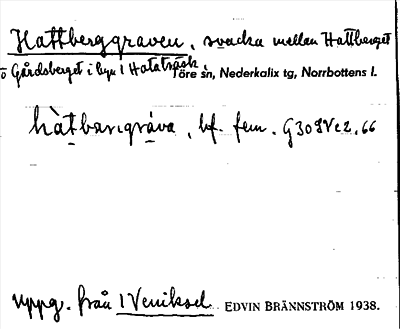 Hattberggraven, svacka mellan Hattberget
o Gårdsberget i byn 1 Hataträsk, Töre sn, Nederkalix tg, Norrbottens l.
hàtbargráva, bf. fem. G309Ve2.66
uppg. från 1 Veniksel EDVIN BRÄNNSTRÖM 1938.